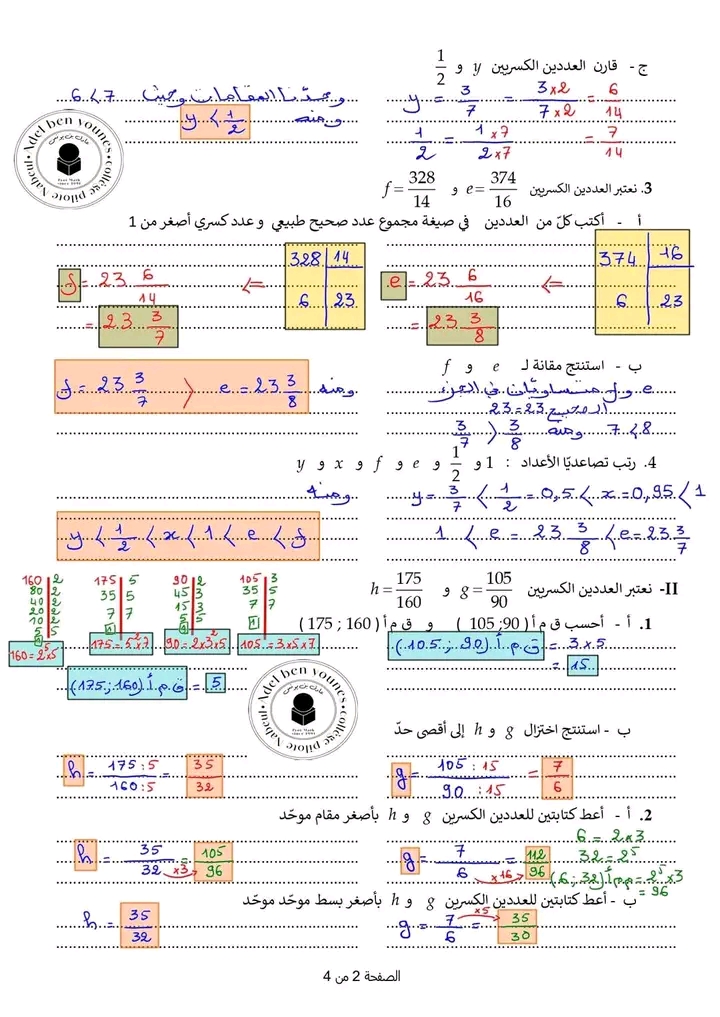 ج - قارن العددين الكسريين y و 1/2
y = 3/7 = 3×2/7×2 = 6/14
1/2 = 1×7/2×7 = 7/14
وحدنا المقامات وحيث 6<7
ومنه y < 1/2
Adel ben younes • collège pilote Nabeul •
3. نعتبر العددين الكسريين e = 374/16 و f = 328/14
أ - أكتب كلّ من العددين في صيغة مجموع عدد صحيح طبيعي و عدد كسري أصغر من 1
374 | 16
6 | 23
⇐ e = 23 6/16
= 23 3/8
328 | 14
6 | 23
⇐ f = 23 6/14
= 23 3/7
ب - استنتج مقانة لـ e و f
e و f متساويان في الجزء
الصحيح 23=23
7<8 ومنه 3/7 > 3/8
ومنه f = 23 3/7 > e = 23 3/8
4. رتب تصاعديًا الأعداد : 1 و 1/2 و e و f و x و y
y = 3/7 < 1/2 = 0,5 < x = 0,95 < 1
1 < e = 23 3/8 < e = 23 3/7
ومنه
y < 1/2 < x < 1 < e < f
II- نعتبر العددين الكسريين g = 105/90 و h = 175/160
1. أ - أحسب ق م أ ( 90; 105 ) و ق م أ ( 160 ; 175 )
105 | 3
35 | 5
7 | 7
1
105 = 3×5×7
90 | 2
45 | 3
15 | 3
5 | 5
1
90 = 2×3²×5
175 | 5
35 | 5
7 | 7
1
175 = 5²×7
160 | 2
80 | 2
40 | 2
20 | 2
10 | 2
5 | 5
1
160 = 2⁵×5
ق.م.أ (90 ; 105) = 3×5
= 15
ق.م.أ (160 ; 175) = 5
Adel ben younes • collège pilote Nabeul •
ب - استنتج اختزال g و h إلى أقصى حدّ
g = 105 : 15/90 : 15 = 7/6
h = 175 : 5/160 : 5 = 35/32
2. أ - أعط كتابتين للعددين الكسرين g و h بأصغر مقام موحّد
6 = 2×3
32 = 2⁵
م.م.أ (6 ; 32) = 2⁵×3
= 96
g = 7/6 ×16 = 112/96
h = 35/32 ×3 = 105/96
ب - أعط كتابتين للعددين الكسرين g و h بأصغر بسط موحّد موحّد
g = 7/6 ×5 = 35/30
h = 35/32
الصفحة 2 من 4